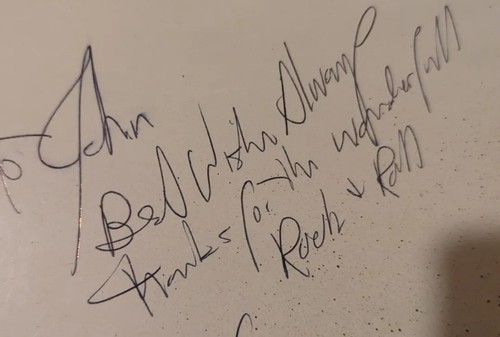 To John
Best Wishes Always
Thanks for the wonderfull
Rock & Roll